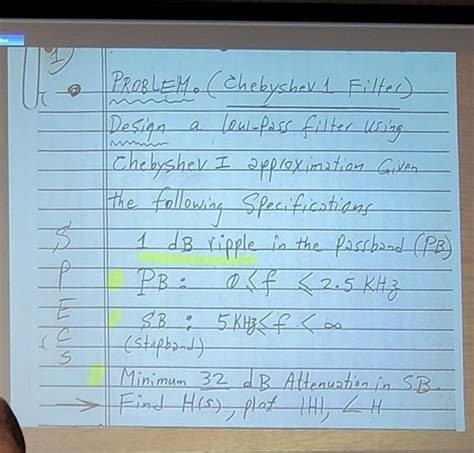 1
PROBLEM. (Chebyshev 1 Filter)
Design a low-pass filter using
Chebyshev I approximation Given
the following Specifications
1 dB ripple in the Passband (PB)
PB: 0 ≤ f ≤ 2.5 KHz
SB: 5 KHz ≤ f < ∞
(Stopband)
Minimum 32 dB Attenuation in SB.
Find H(s), plot |H|, ∠H
S
P
E
C
S